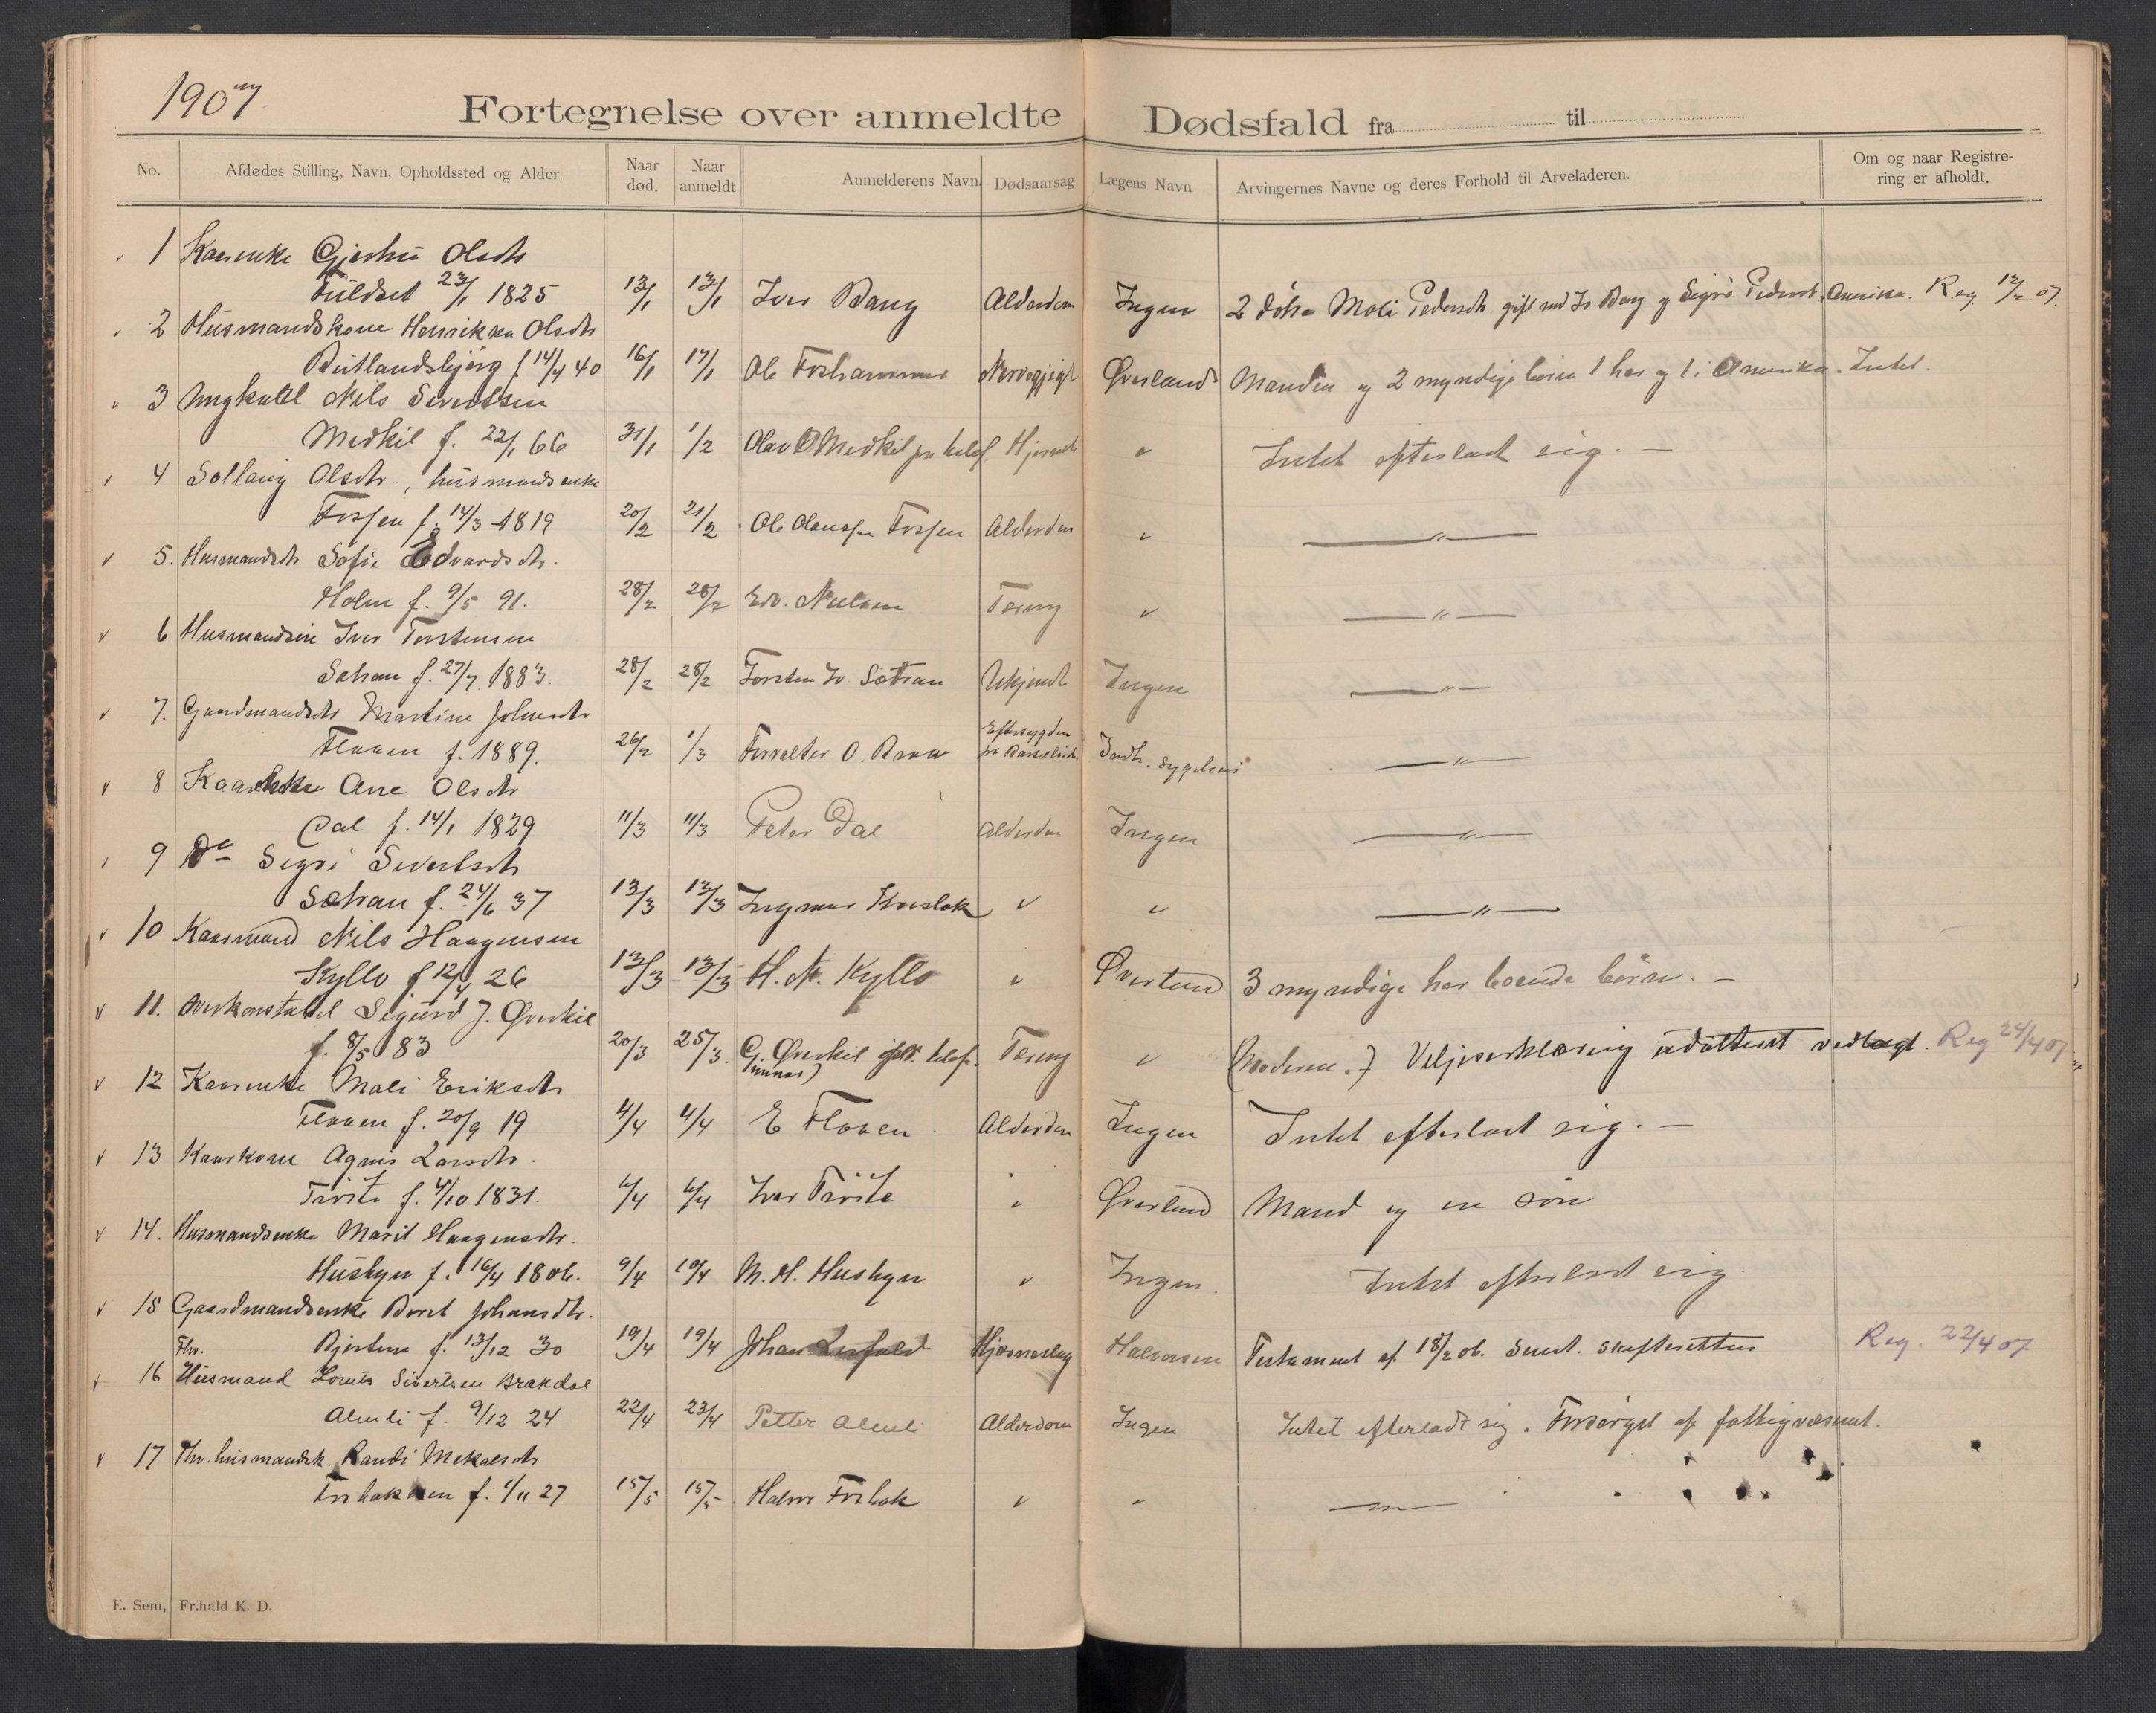 1907
Fortegnelse over anmeldte Dødsfald fra til
No. Afdødes Stilling, Navn, Opholdssted og Alder. Naar død. Naar anmeldt. Anmelderens Navn. Dødsaarsag Lægens Navn Arvingernes Navne og deres Forhold til Arveladeren. Om og naar Registrering er afholdt.
1 Kaarenke Olsdtr
Fuldset 23/1 1825 13/1 13/1 Iver Bang Alderdom Ingen 2 døtre Mali Pedersdtr gift med Is Bang og Sigri Pedersdt. Amerika. Reg 12/2 07.
2 Husmandskone Henrikka Olsdtr
Rutlandsbjørg f 14/4 40 16/1 17/1 Ole Foshammer Øverland Manden og 2 myndige børn 1 her og 1 i Amerika. Intet.
3 Ungkall Nils Sivertsen
Medkil f. 22/1 66 31/1 1/2 Olav O Medkil pr telef. " Intet efterladt sig. —
4 Sollaug Olsdtr., husmandsenke
Fossen f. 14/3 1819 20/2 21/2 Ole Fossen Alderdom " — " —
5. Husmandsdtr Sofie Edvardsdtr.
Holm f. 9/5 91. 28/2 28/2 Edv. Nielsen Tæring " — " —
6 Husmandsøn Iver Torstensen
Sætran f. 27/7 1883. 28/2 28/2 Torsten Iv. Sætran Ukjendt Ingen — " —
7. Gaardmandsdtr Martine Johnsdtr
Floaen f. 1889. 26/2 1/3 Forvalter O. Braa Eftersygdom fra Indh. sygehus — " —
8 Kaarenke Ane Olsdtr
Dal f. 14/1 1829 11/3 11/3 Peter Dal Alderdom Ingen — " —
9 Do Sigri Sivertsdtr
Sætran f. 24/6 37 13/3 13/3 Ingmar " " — " —
10 Kaarmand Nils Haagensen
Kyllo f 12/4 26 13/3 13/3 H. N. Kyllo " Øverland 3 myndige her boende børn. —
11. Overkonstabel Sigurd J. Øverkil
f. 8/5 83 20/3 25/3. G. Øverkil telef. Tæring " (Moderen.) Viljeserklæring udattest vedlagt. Reg 24/4 07
12 Kaarenke Mali Eriksdtr
Floaen f. 20/9 19 4/4 4/4 E Floaen Alderdom Ingen Intet efterladt sig. —
13 Kaarkone Agnis Larsdtr.
f. 4/10 1831. 4/4 4/4 Iver " Øverland Mand og en søn
14. Husmandsenke Marit Haagensdtr.
Husbyn f. 16/4 1806. 9/4 10/4 M. H. Husbyn " Ingen. Intet efterladt sig
15 Gaardmandsenke Beret Johansdtr.
Fhv. f. 13/12 30 19/4 19/4 Johan Hjerneslag Halvorsen Testament af 18/2 06. Skifteretten Reg. 22/4 07
16 Husmand Lorents Sivertsen Brækdal
Almli f. 9/12 24 22/4 23/4 Petter Almli Alderdom Ingen Intet efterladt sig. Forsørget af fattigvæsenet.
17 Fhv. husmandsk. Randi Mekalsdtr
Forbakken f. 1/11 27 15/5 15/5. Halvor Forbak " " — " —
E. Sem, Fr.hald K. D.